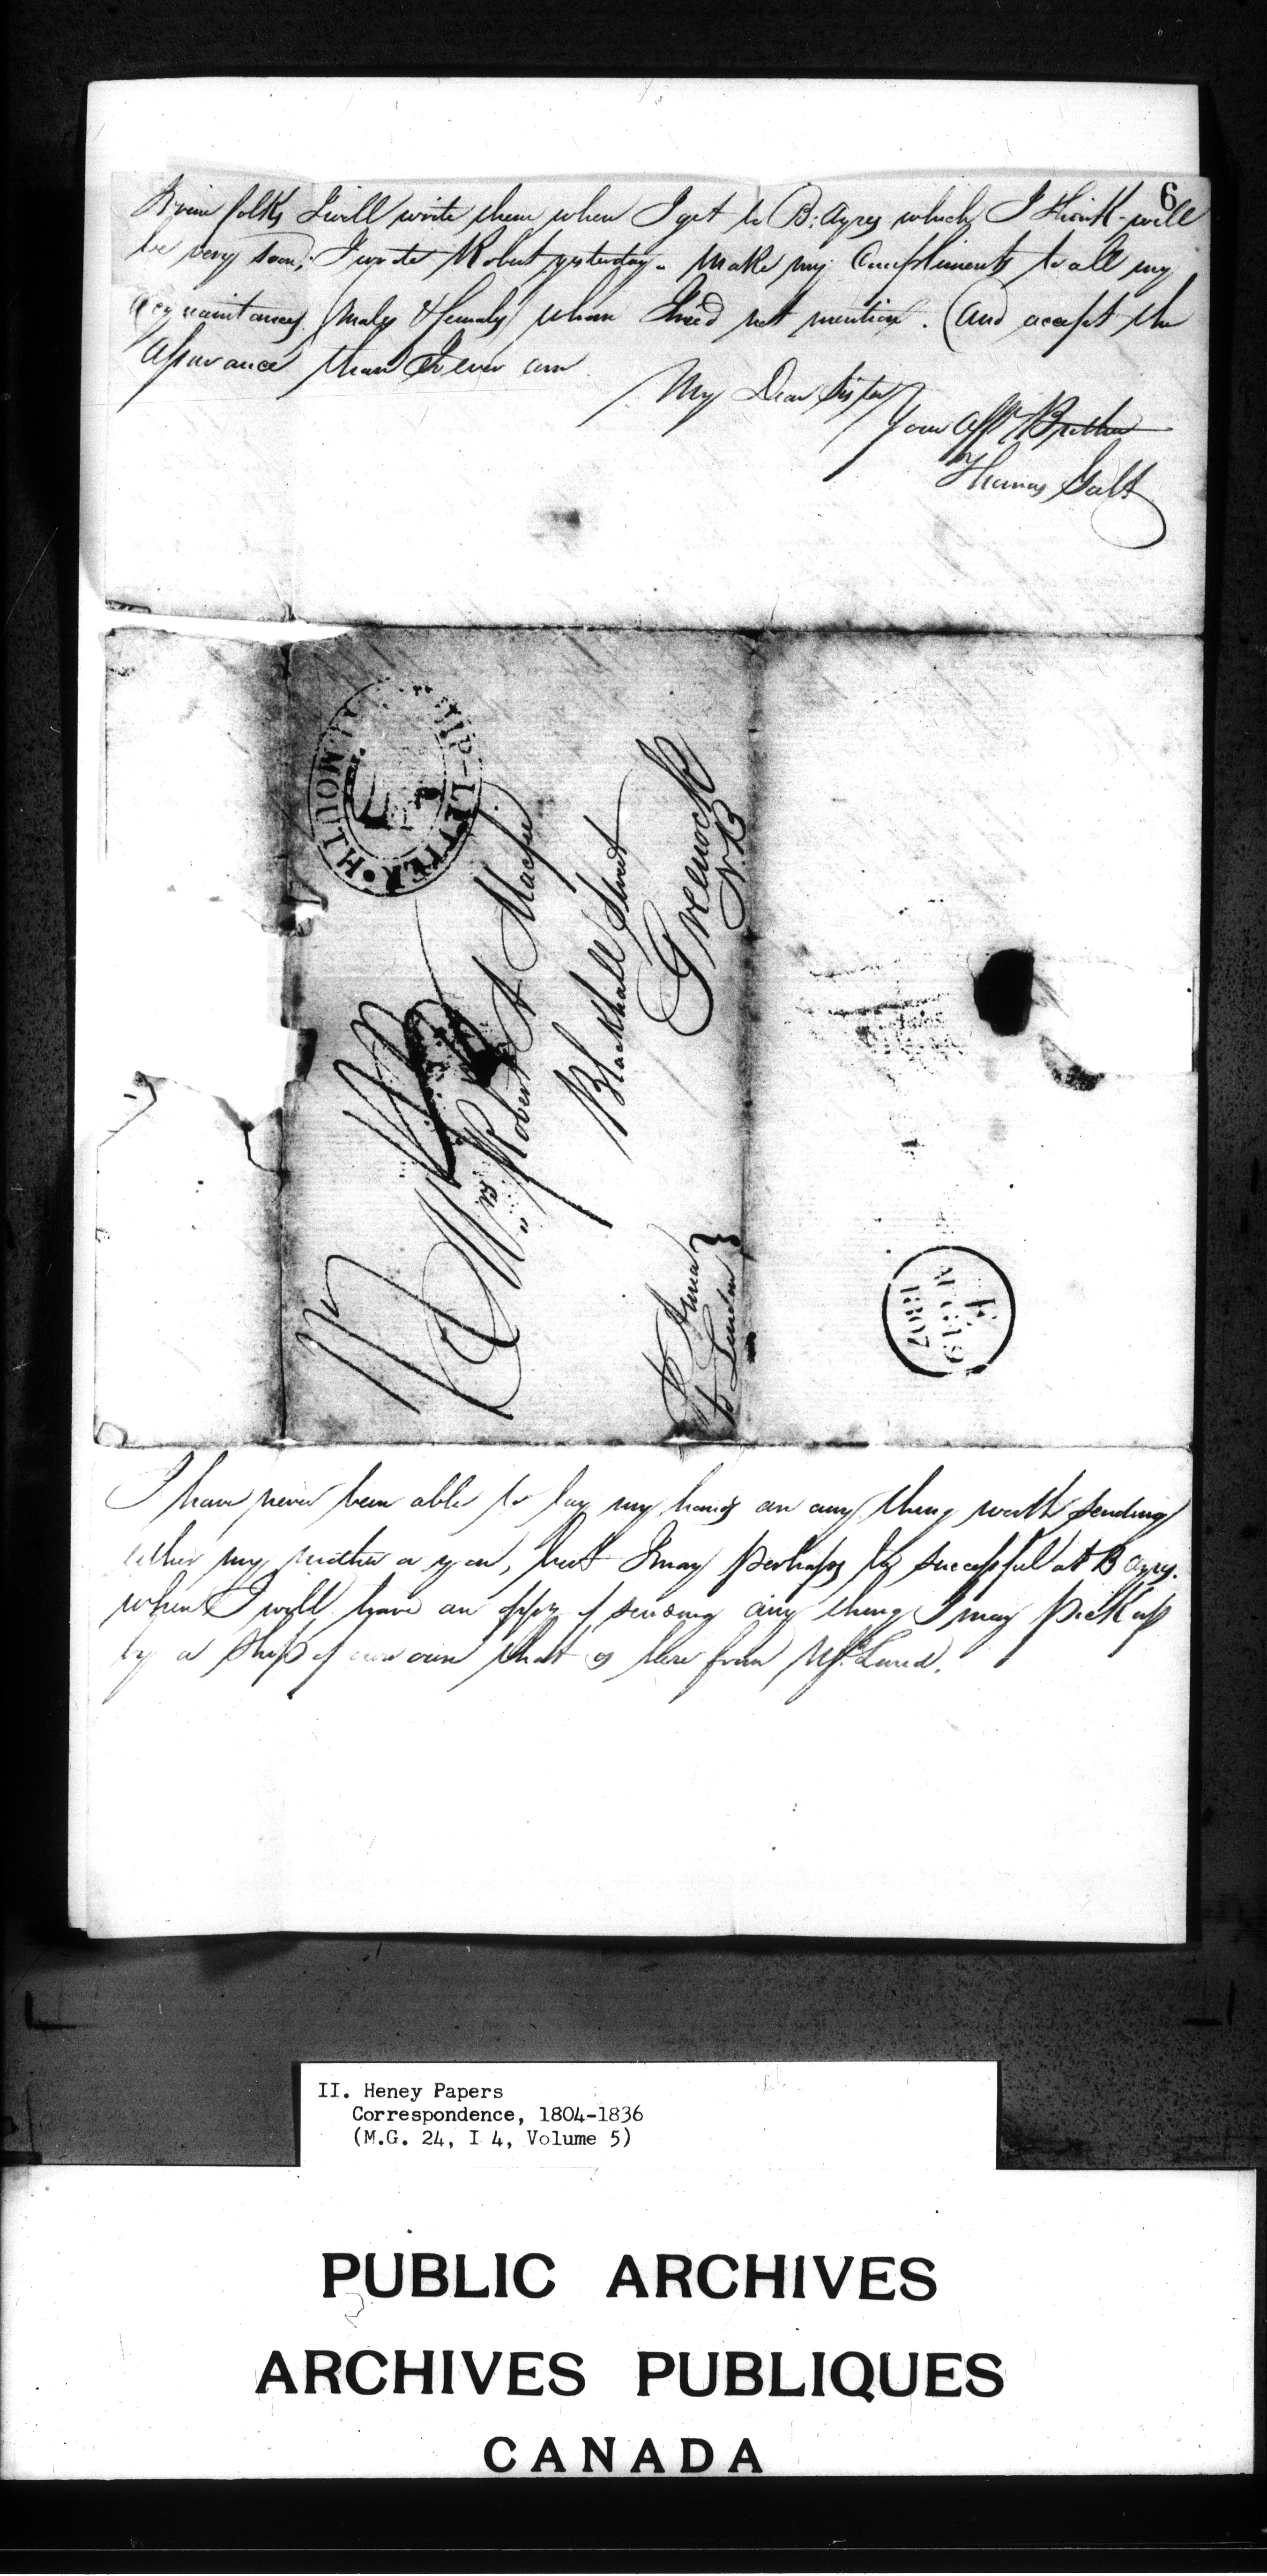 6
Irvine folks I will write them when I get to B: Ayres which I think will
be very soon; I wrote Robert yesterday. make my Compliments to all my
acquaintances Males & Femals whom I need not mention. And accept the
assurance than I ever am
My Dear Sister
Your afft Brother
Thomas Galt
SHIP-LETTER
MOUTH
Mrs Robert A Macfie
Blackhall Street
Greenock
N.B
Anna
to London
E
AUG 19
1807
I have never been able to lay my hands on any thing worth sending
either my mother or you, but I may perhaps be successful at B Ayres.
where I will have an oppy of sending any thing I may pick up
by a Ship of our own that is here from
II. Heney Papers
Correspondence, 1804-1836
(M.G. 24, I 4, Volume 5)
PUBLIC ARCHIVES
ARCHIVES PUBLIQUES
CANADA